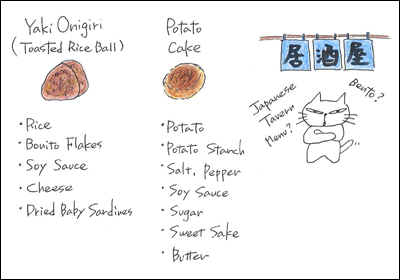 Yaki Onigiri
(Toasted Rice Ball)
• Rice
• Bonito Flakes
• Soy Sauce
• Cheese
• Dried Baby Sardines
Potato
Cake
• Potato
• Potato Starch
• Salt, Pepper
• Soy Sauce
• Sugar
• Sweet Sake
• Butter
居酒屋
Japanese
Tavern
Menu?
Bento?